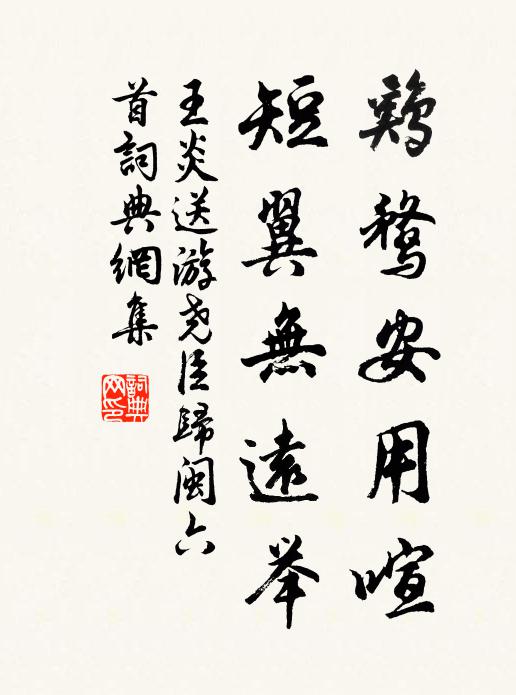 鷄鶩安用喧
短翼無遠举
王炎送游尧臣歸闽六
首詞典網集
詞典
网印